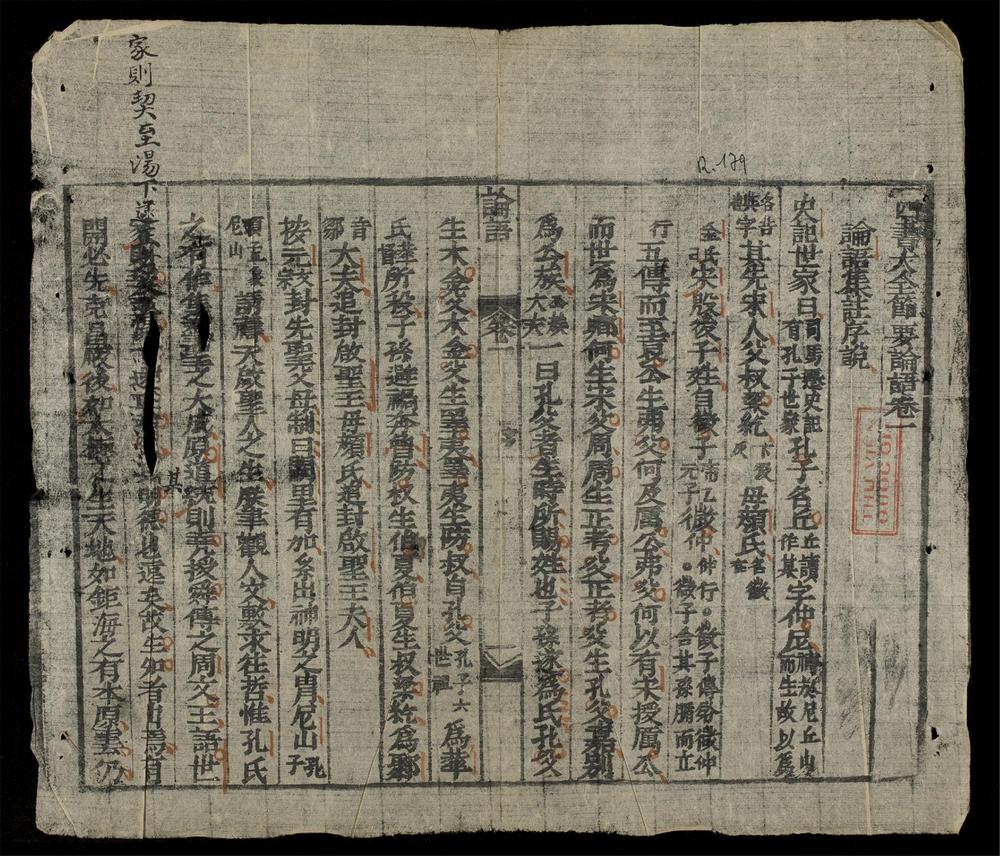 四書大全節要論語卷一
論語集註序說
史記世家曰司馬遷史記有孔子世家孔子名丘丘讀作某字仲尼禱於尼丘山而生故以爲
名若字也其先宋人父叔梁紇下沒反母顏氏名徵在
金氏曰宋殷後子姓自微子帝乙元子微仲仲行。微子傳弟微仲。微子舍其孫腯而立
行五傳而至哀公生弗父何及厲公弗父何以有宋授厲公
而世爲宋卿何生宋父周周生正考父正考父生孔父嘉別
爲公族一曰孔父者生時所賜姓也子孫遂爲氏孔父
論語
卷一
生木金父木金父生睪夷睪夷生防叔自孔父孔子六世祖爲華
氏所殺子孫避禍奔魯防叔生伯夏伯夏生叔梁紇爲郰
音鄒大夫追封啟聖王母顏氏追封啟聖王夫人
按元文封先聖父母制曰闕里有加系出神明之胄尼山孔子
尼山請禱天啟聖人之生朕聿觀人文敷求往哲惟孔氏
之有作集群聖之大成原道統則堯授舜傳之周文王語世
家則契至湯下逮
其明德也遠矣故生知者出焉有
開必先克昌厥後如太極之生天地如鉅海之有本原雲仍
R.179